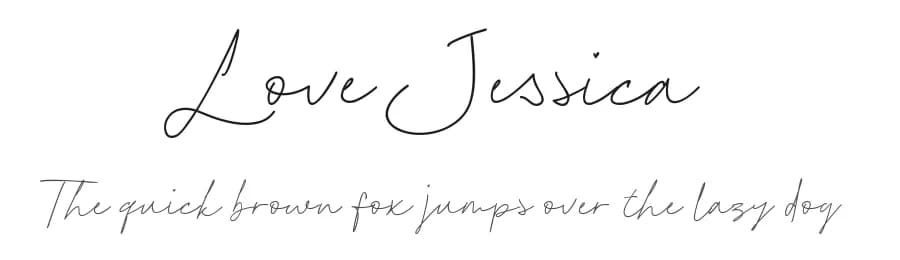 Love Jessica
The quick brown fox jumps over the lazy dog